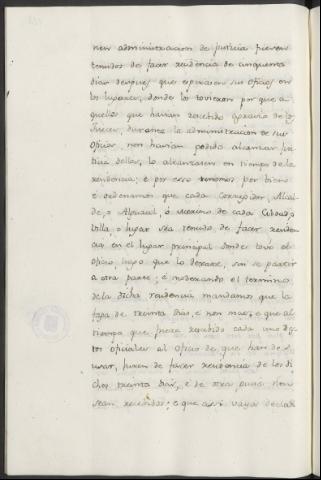 nen administracion de justicia fuesen
tenidos de facer residencia de cinquenta
dias despues que espirasen sus oficios en
los lugares, donde los tovieron por que a
quellos que havian recebido agravio de los
Jueces, durante la administracion de sus
oficios, non havian podido alcanzar jus
ticia dellos, la alcanzasen en tiempo de la
residencia; e por esso tenemos por bien
e ordenamos que cada Corregidor, Alcal
de, o Alguacil, ó merino de cada Cibdad,
villa o lugar sea tenudo de facer residen
cia en el lugar principal donde tovo el
oficio, luego que lo dexare, sin se partir
a otra parte; e moderando el termino
de la dicha residencia mandamos que la
faga de treinta dias, e non mas; e que al
tiempo que fuere recebido cada uno des
tos oficiales al oficio de que han de u
sar, juren de facer residencia de los di
chos treinta dias, e de otra guisa non
sean recebidos; e que assi vaya declar